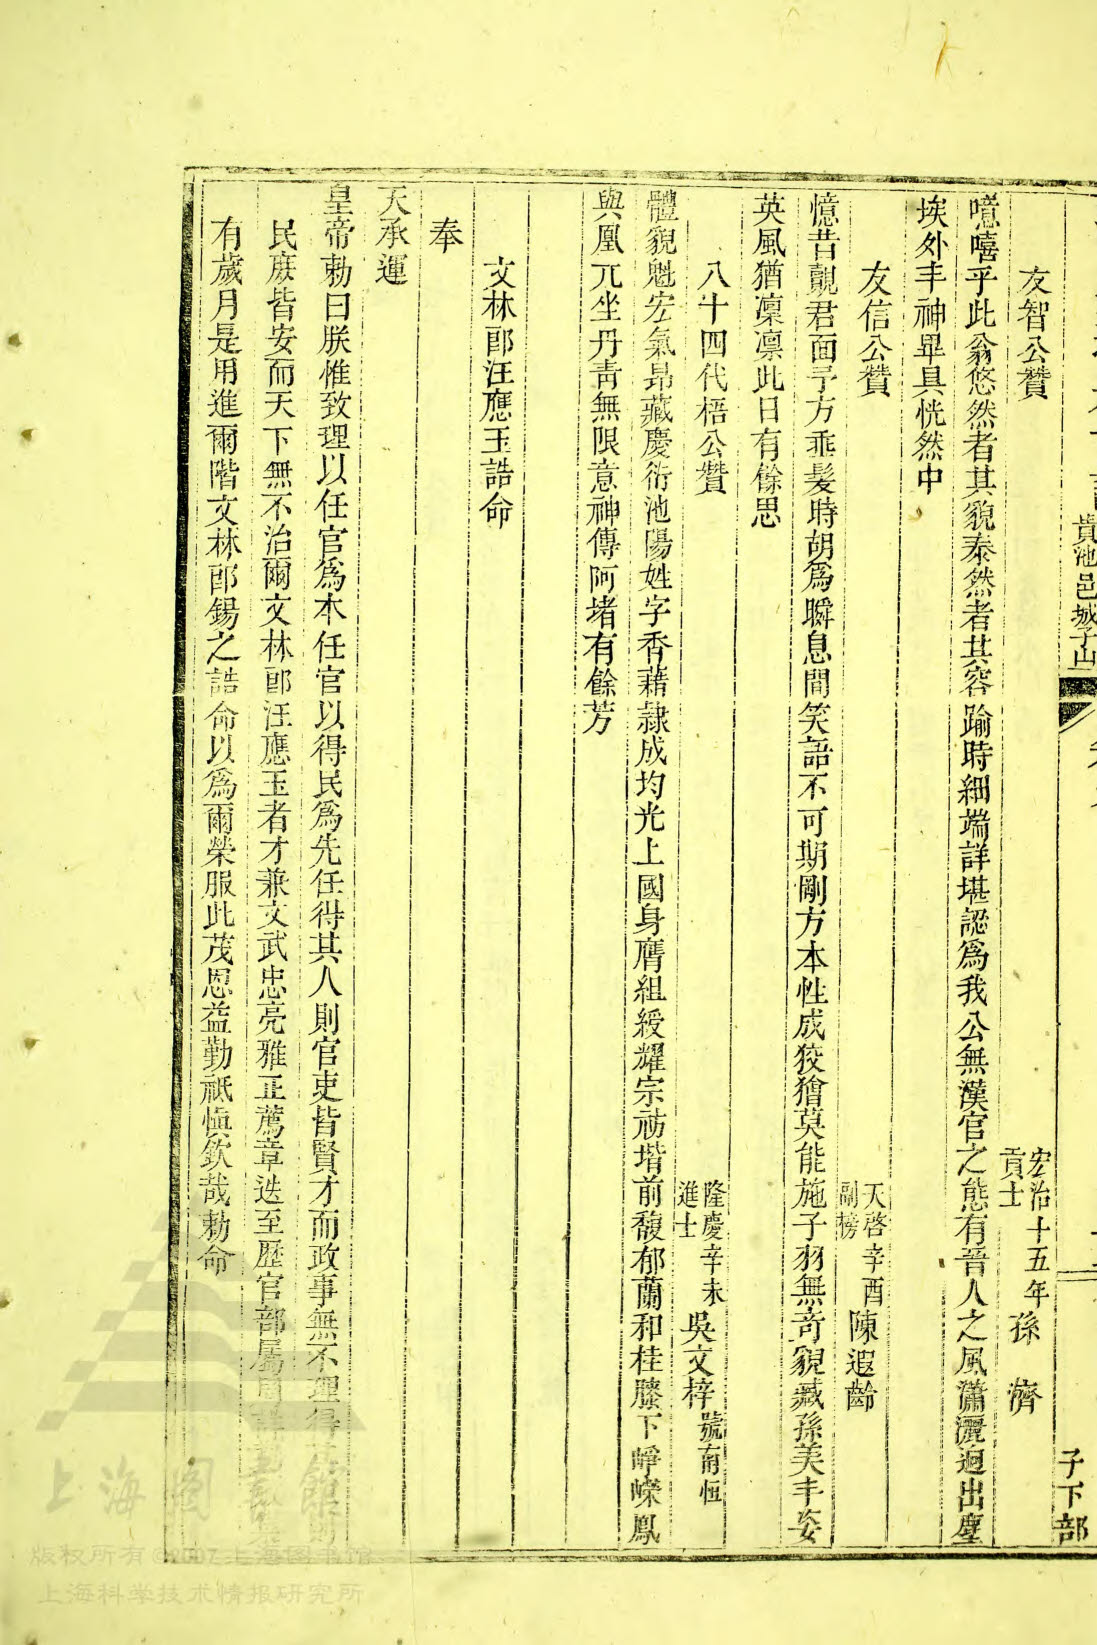 貴池邑城子山
子下部
友智公贊
宏治十五年貢士 孫濟
噫嘻乎此翁悠然者其貌泰然者其容踰時細端詳堪認爲我公無漢官之態有晉人之風瀟灑迥出塵
埃外丰神畢具恍然中
友信公贊
天啓辛酉副榜 陳遐齡
憶昔覿君面予方垂髮時胡爲瞬息間笑語不可期剛方本性成狡獪莫能施子羽無奇貌臧孫美丰姿
英風猶凜凜此日有餘思
八十四代梧公贊
隆慶辛未進士 吳文梓號甯恒
體貌魁宏氣昻藏慶衍池陽姓字香藉隷成均光上國身膺組綬耀宗祊堦前馥郁蘭和桂膝下崢嶸鳳
與凰兀坐丹靑無限意神傳阿堵有餘芳
文林郎汪應玉誥命
奉
天承運
皇帝勅曰朕惟致理以任官爲本任官以得民爲先任得其人則官吏皆賢才而政事無不理得
民庶皆安而天下無不治爾文林郎汪應玉者才兼文武忠亮雅正薦章迭至歷官部屬
有歲月是用進爾階文林郎錫之誥命以爲爾榮服此茂恩益勤祗愼欽哉勅命
上海图书馆
版权所有©2007上海图书馆
上海科学技术情报研究所